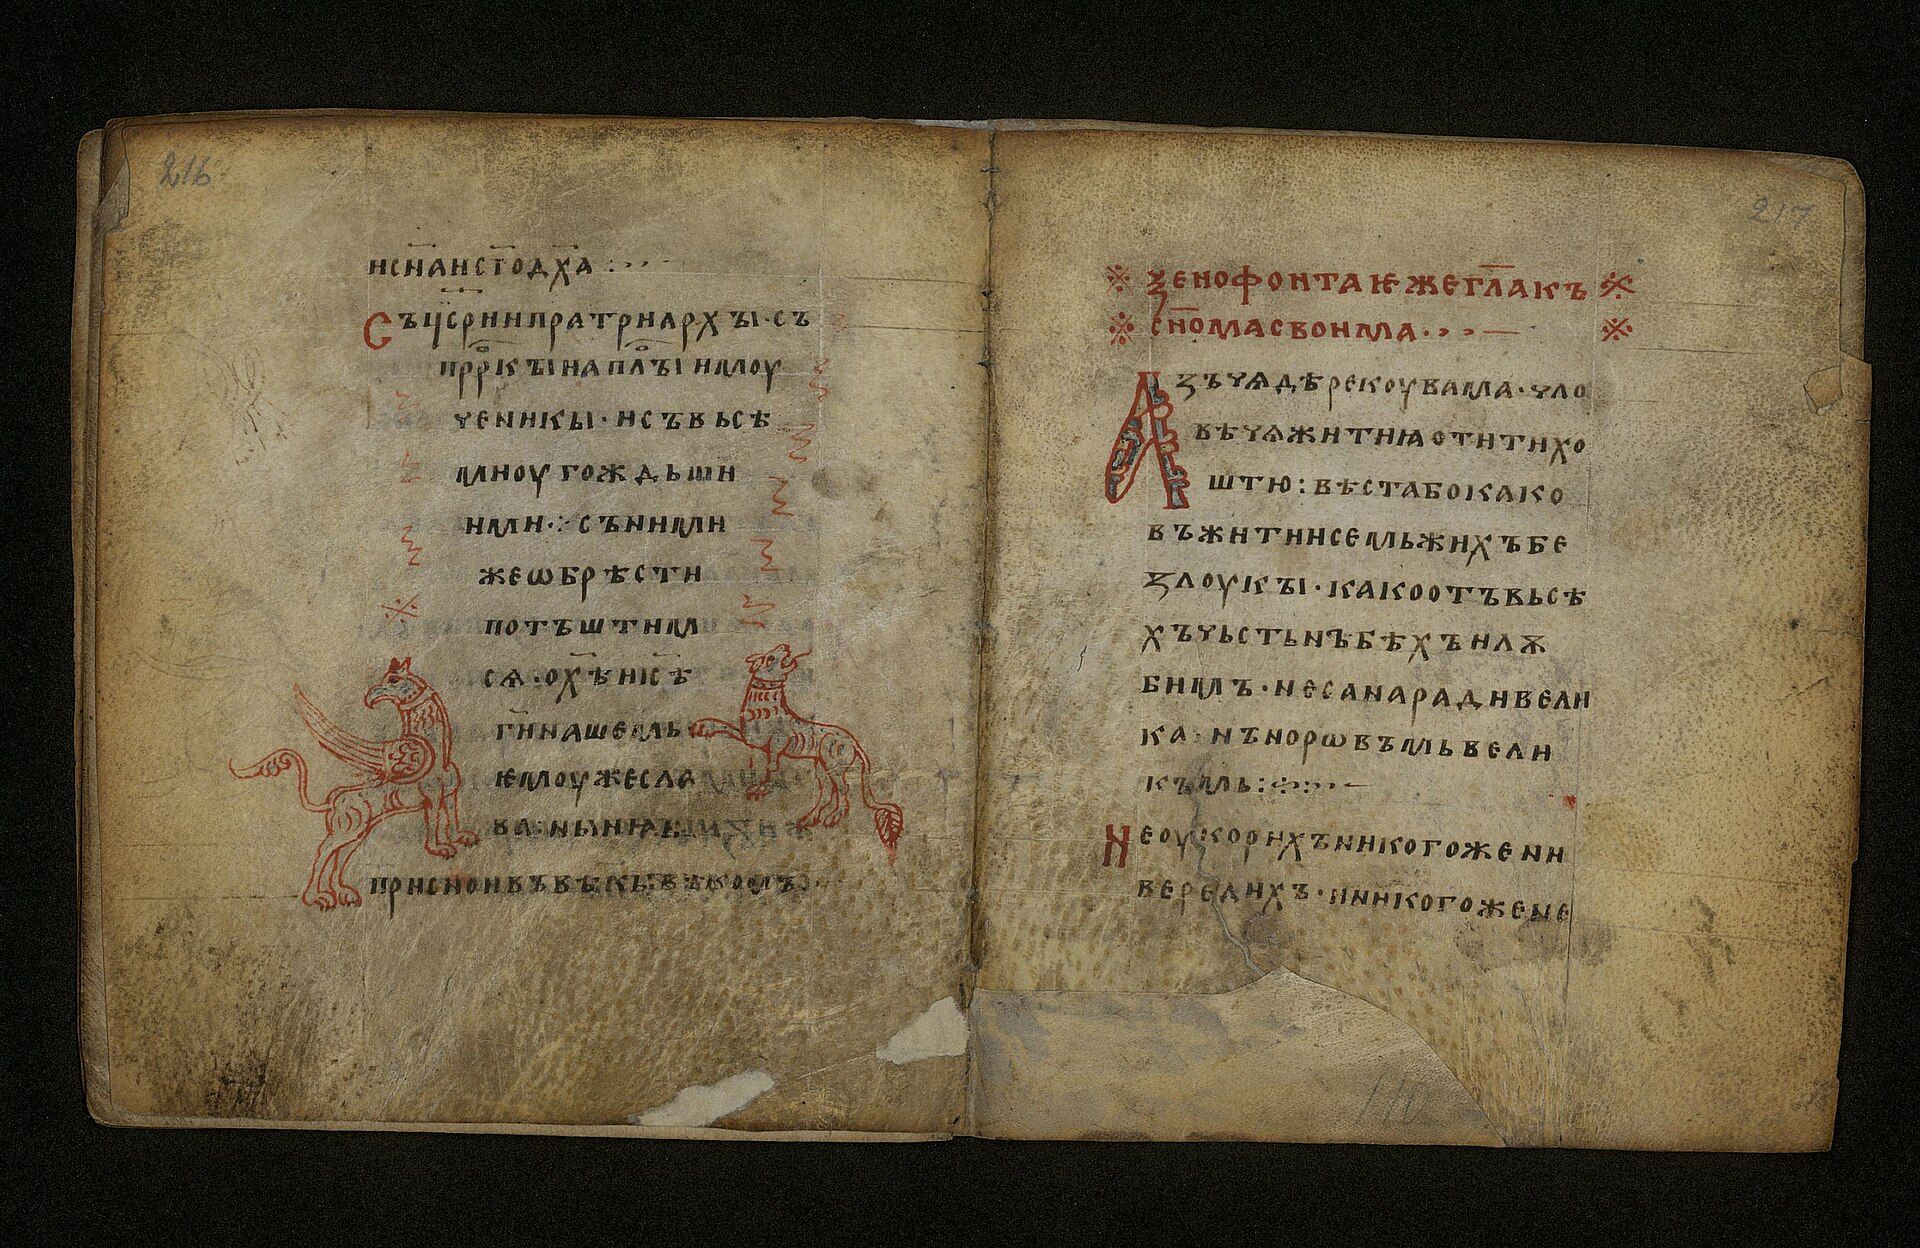 216
и с҃на и ст҃о дх҃а :····
Съ цс҃рии и пратриархꙑ · съ
пр҃ркꙑ и апл҃ꙑ и моу
ченикы · и съ вьсѣ
ми оугождьши
ими ·:· съ ними
же ѡбрѣсти
потъштим
сѧ · о хѣ҃ ис҃ѣ
ги҃ нашемь
ѥмоу же сла
ва · нꙑнꙗ
присно и въ вѣкꙑ вѣкомъ
217
※ ꙁенофонта ѥже гл҃а къ ※
※ сн҃ома своима · · · — ※
Аꙁъ чѧдѣ рекоу вама · чло
вѣчѧ житиꙗ отити хо
штю : вѣста бо како
въ житии семь жихъ бе
ꙁ лоукꙑ · како отъ вьсѣ
хъ чьстьнъ бѣхъ и лѫ
бимъ · не сана ради вели
ка · нъ норѡвъмь вели
къмь :·:·:··—
Не оукорихъ никогоже ни
вередихъ · ни никогоже не